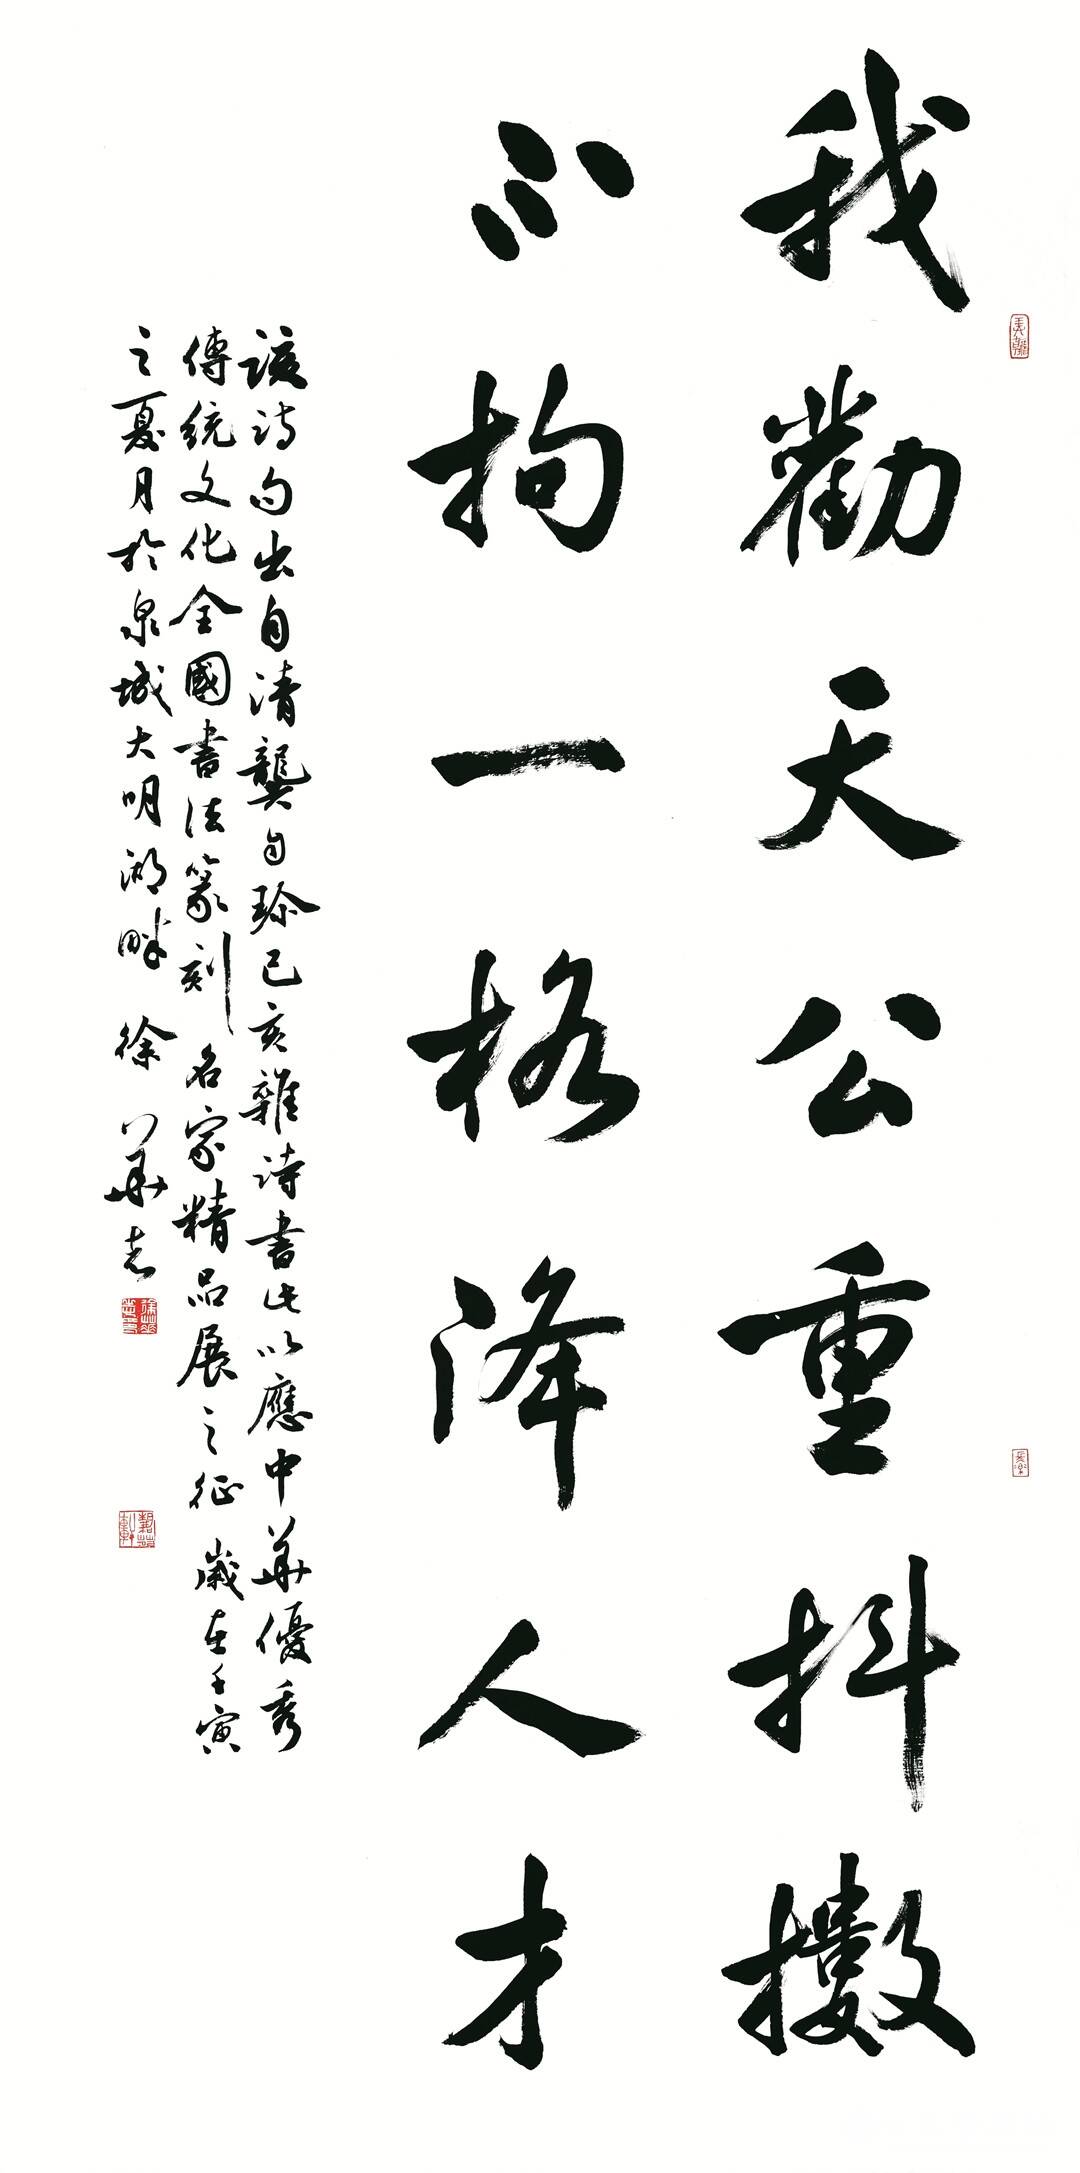 我勸天公重抖擻
不拘一格降人才
該詩句出自清龔自珍己亥雜詩書此以應中華優秀
傳統文化全國書法篆刻名家精品展之征歲在壬寅
之夏月於泉城大明湖畔徐華志